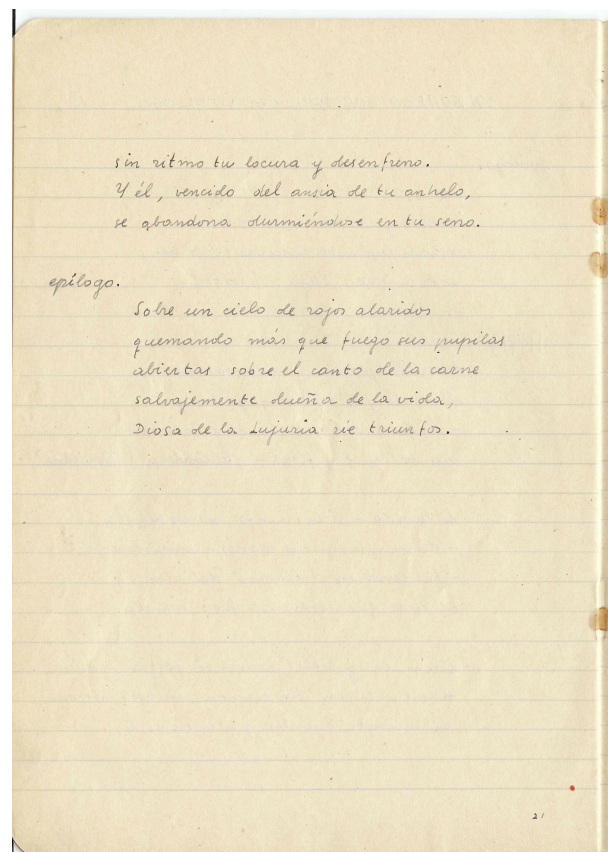 sin ritmo tu locura y desenfreno.
Y él, vencido del ansia de tu anhelo,
se abandona durmiéndose en tu seno.
epílogo.
Sobre un cielo de rojos alaridos
quemando más que fuego sus pupilas
abiertas sobre el canto de la carne
salvajemente dueña de la vida,
Diosa de la Lujuria rie triunfos.
21